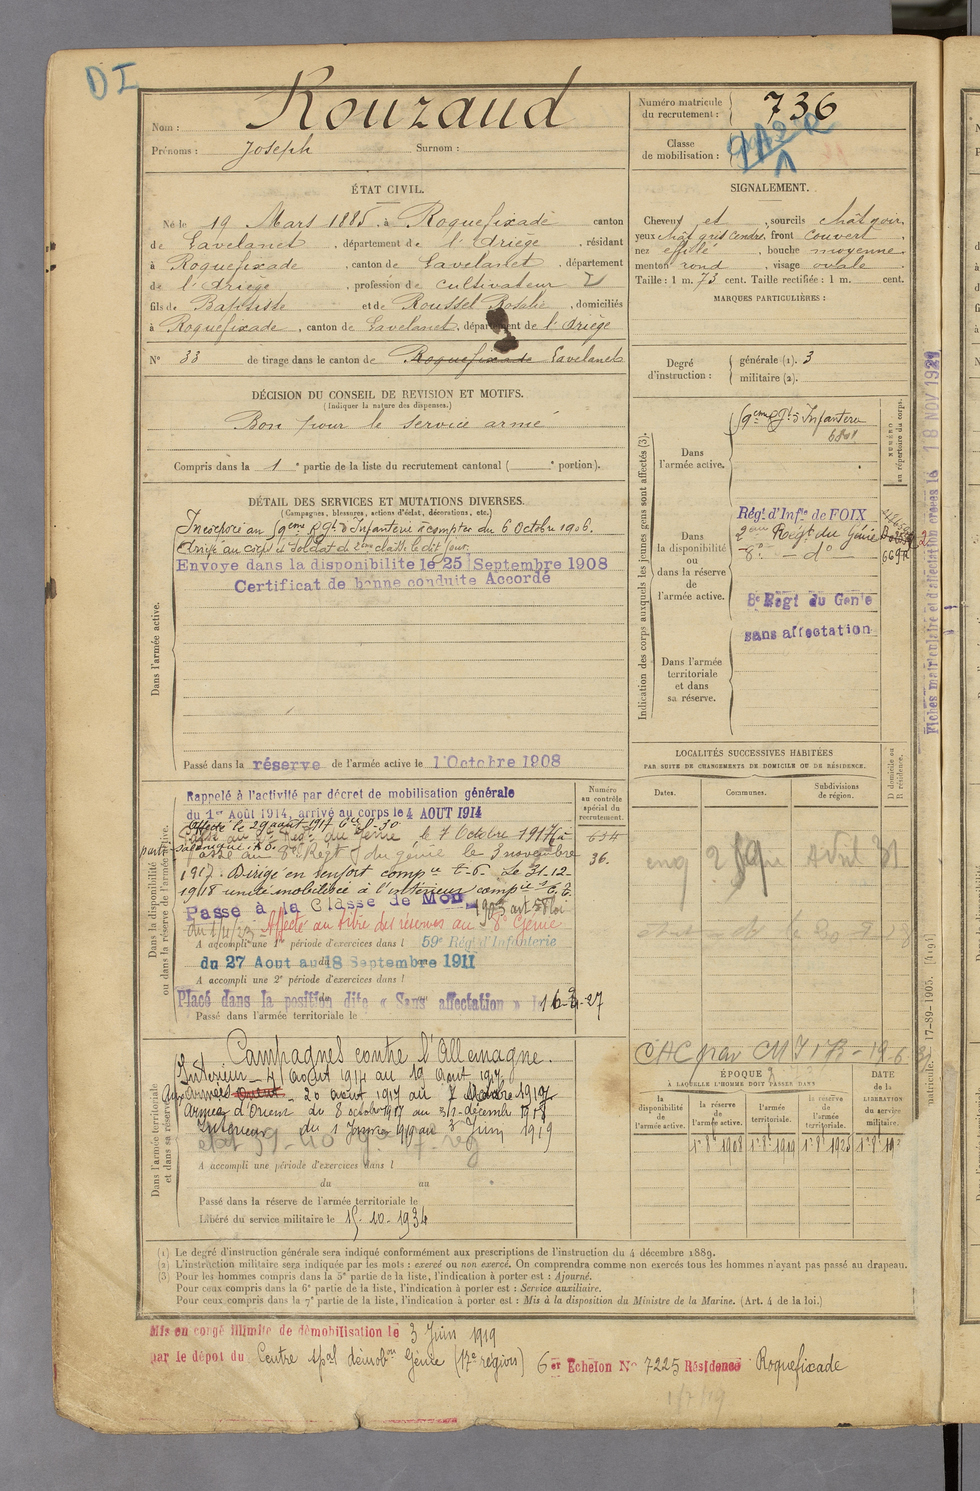 DI
Nom : Rouzaud
Prénoms : Joseph Surnom :
Numéro matricule du recrutement : 736
Classe de mobilisation :
ÉTAT CIVIL.
Né le 19 Mars 1885 à Roquefixade canton
de Lavelanet, département de l'Ariège, résidant
à Roquefixade, canton de Lavelanet, département
de l'Ariège, profession de cultivateur
fils de Baptiste et de Roussel Rosalie, domiciliés
à Roquefixade, canton de Lavelanet, département de l'Ariège
N° 33 de tirage dans le canton de Roquefixade Lavelanet
SIGNALEMENT.
Cheveux et sourcils chât. noir
yeux chât. gris cendré, front couvert
nez effilé, bouche moyenne
menton rond, visage ovale
Taille : 1 m. 73 cent. Taille rectifiée : 1 m. cent.
MARQUES PARTICULIÈRES :
Degré d'instruction : générale (1). 3
militaire (2).
DÉCISION DU CONSEIL DE REVISION ET MOTIFS.
(Indiquer la nature des dispenses.)
Bon pour le service armé
Compris dans la 1e partie de la liste du recrutement cantonal ( e portion).
DÉTAIL DES SERVICES ET MUTATIONS DIVERSES.
(Campagnes, blessures, actions d'éclat, décorations, etc.)
Dans l'armée active.
Incorporé au 59eme Rgt d'Infanterie à compter du 6 Octobre 1906.
Arrivé au corps et soldat de 2eme classe le dit jour.
Envoye dans la disponibilite le 25 Septembre 1908
Certificat de bonne conduite Accordé
Passé dans la réserve de l'armée active le 1 Octobre 1908
Indication des corps auxquels les jeunes gens sont affectés (3).
NUMÉRO au répertoire du corps.
Dans l'armée active.
59eme Rgt d'Infanterie
Dans la disponibilité ou dans la réserve de l'armée active.
Régt d'Infie de FOIX
2eme Régt du Génie
8e – do
8e Régt du Génie
sans affectation
Dans l'armée territoriale et dans sa réserve.
Fiches matriculaire et d'affectation créées le 18 NOV 1929
LOCALITÉS SUCCESSIVES HABITÉES
PAR SUITE DE CHANGEMENTS DE DOMICILE OU DE RÉSIDENCE.
Dates. Communes. Subdivisions de région. D domicile ou R résidence.
Dans la disponibilité ou dans la réserve de l'armée active.
Numéro au contrôle spécial du recrutement.
Rappelé à l'activité par décret de mobilisation générale
du 1er Août 1914, arrivé au corps le 4 AOUT 1914
affecté le 29 août 1917 Cie D-30
du génie le 7 Octobre 1917
passé au 8e Régt du génie le 3 novembre
1917. Dirigé en renfort Le 31-12-
1918 à l'intérieur
36.
Passé à la Classe de Mob
Affecté au titre des réserves au 8e Génie
A accompli une 1re période d'exercices dans l 59e Régt d'Infanterie
du 27 Aout au 18 Septembre 1911
A accompli une 2e période d'exercices dans l
Placé dans la position dite « Sans affectation »
Passé dans l'armée territoriale le
Dans l'armée territoriale et dans sa réserve.
Campagnes contre l'Allemagne.
Intérieur – 4 août 1914 au 19 août 1917
Aux armées – 20 août 1917 au 7 octobre 1917
Armée d'Orient du 8 octobre 1917 au 31 décembre 1918
Intérieur du 1 Janvier 1919 au 3 Juin 1919
A accompli une période d'exercices dans l
du au
Passé dans la réserve de l'armée territoriale le
Libéré du service militaire le 15-10-1934
ÉPOQUE
À LAQUELLE L'HOMME DOIT PASSER DANS
la disponibilité de l'armée active.
la réserve de l'armée active.
l'armée territoriale.
la réserve de l'armée territoriale.
DATE de la LIBÉRATION du service militaire.
(1) Le degré d'instruction générale sera indiqué conformément aux prescriptions de l'instruction du 4 décembre 1889.
(2) L'instruction militaire sera indiquée par les mots : exercé ou non exercé. On comprendra comme non exercés tous les hommes n'ayant pas passé au drapeau.
(3) Pour les hommes compris dans la 5e partie de la liste, l'indication à porter est : Ajourné.
Pour ceux compris dans la 6e partie de la liste, l'indication à porter est : Service auxiliaire.
Pour ceux compris dans la 7e partie de la liste, l'indication à porter est : Mis à la disposition du Ministre de la Marine. (Art. 4 de la loi.)
Mis en congé illimité de démobilisation le 3 Juin 1919
par le dépot du Centre démobon Génie (17e région) 6e Echelon N° 7225 Résidence Roquefixade